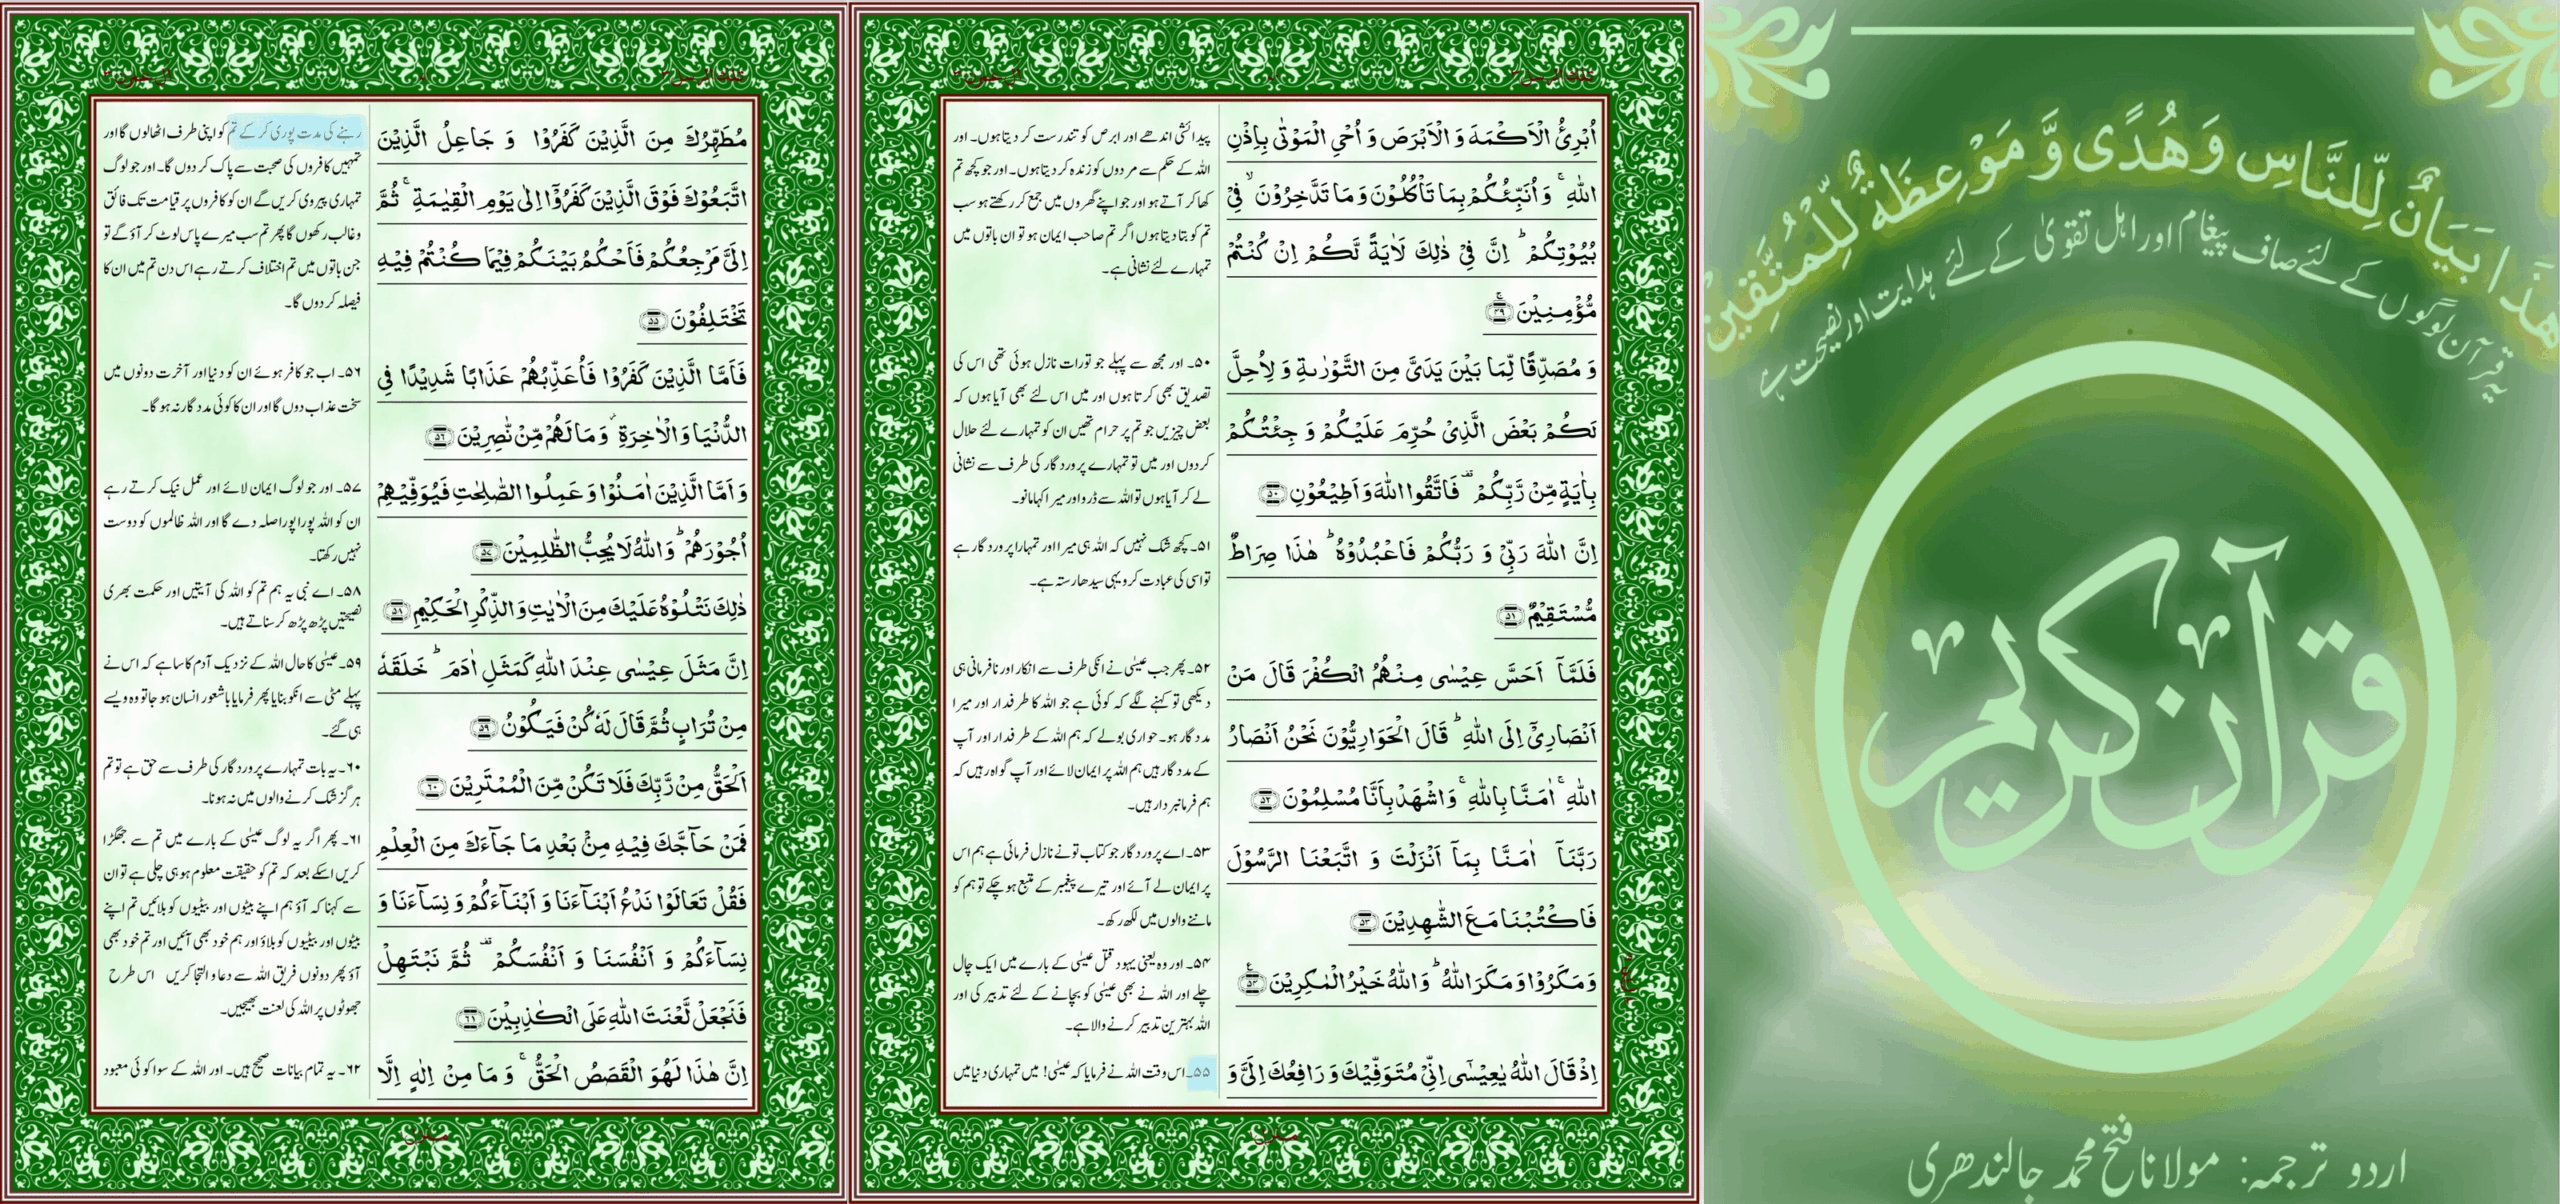 هَذَا بَيَانٌ لِّلنَّاسِ وَهُدًى وَّ مَوْعِظَةٌ لِّلْمُتَّقِينَ
یہ قرآن لوگوں کے لئے صاف پیغام اور اہل تقویٰ کے لئے ہدایت اور نصیحت ہے
قرآن کریم
اردو ترجمہ: مولانا فتح محمد جالندھری
تلك الرسل ۳
اٰل عمرٰن ۳
اُبْرِئُ الْاَكْمَهَ وَ الْاَبْرَصَ وَ اُحْیِ الْمَوْتٰى بِاِذْنِ
اللّٰهِ ۚ وَ اُنَبِّئُكُمْ بِمَا تَاْكُلُوْنَ وَ مَا تَدَّخِرُوْنَ ۙ فِیْ
بُیُوْتِكُمْ ؕ اِنَّ فِیْ ذٰلِكَ لَاٰیَةً لَّكُمْ اِنْ كُنْتُمْ
مُّؤْمِنِیْنَ ۚ ﴿۴۹﴾
وَ مُصَدِّقًا لِّمَا بَیْنَ یَدَیَّ مِنَ التَّوْرٰىةِ وَ لِاُحِلَّ
لَكُمْ بَعْضَ الَّذِیْ حُرِّمَ عَلَیْكُمْ وَ جِئْتُكُمْ
بِاٰیَةٍ مِّنْ رَّبِّكُمْ ۫ فَاتَّقُوا اللّٰهَ وَ اَطِیْعُوْنِ ﴿۵۰﴾
اِنَّ اللّٰهَ رَبِّیْ وَ رَبُّكُمْ فَاعْبُدُوْهُ ؕ هٰذَا صِرَاطٌ
مُّسْتَقِیْمٌ ﴿۵۱﴾
فَلَمَّاۤ اَحَسَّ عِیْسٰى مِنْهُمُ الْكُفْرَ قَالَ مَنْ
اَنْصَارِیْۤ اِلَى اللّٰهِ ؕ قَالَ الْحَوَارِیُّوْنَ نَحْنُ اَنْصَارُ
اللّٰهِ ۚ اٰمَنَّا بِاللّٰهِ ۚ وَ اشْهَدْ بِاَنَّا مُسْلِمُوْنَ ﴿۵۲﴾
رَبَّنَاۤ اٰمَنَّا بِمَاۤ اَنْزَلْتَ وَ اتَّبَعْنَا الرَّسُوْلَ
فَاكْتُبْنَا مَعَ الشّٰهِدِیْنَ ﴿۵۳﴾
وَ مَكَرُوْا وَ مَكَرَ اللّٰهُ ؕ وَ اللّٰهُ خَیْرُ الْمٰكِرِیْنَ ﴿۵۴﴾
اِذْ قَالَ اللّٰهُ یٰعِیْسٰۤى اِنِّیْ مُتَوَفِّیْكَ وَ رَافِعُكَ اِلَیَّ وَ
پیدائشی اندھے اور ابرص کو تندرست کر دیتا ہوں۔ اور
اللہ کے حکم سے مردوں کو زندہ کر دیتا ہوں۔ اور جو کچھ تم
کھا کر آتے ہو اور جو اپنے گھروں میں جمع کر رکھتے ہو سب
تم کو بتا دیتا ہوں اگر تم صاحب ایمان ہو تو ان باتوں میں
تمہارے لئے نشانی ہے۔
۵۰۔ اور مجھ سے پہلے جو تورات نازل ہوئی تھی اس کی
تصدیق بھی کرتا ہوں اور میں اس لئے بھی آیا ہوں کہ
بعض چیزیں جو تم پر حرام تھیں ان کو تمہارے لئے حلال
کر دوں اور میں تو تمہارے پروردگار کی طرف سے نشانی
لے کر آیا ہوں تو اللہ سے ڈرو اور میرا کہا مانو۔
۵۱۔ کچھ شک نہیں کہ اللہ ہی میرا اور تمہارا پروردگار ہے
تو اسی کی عبادت کرو یہی سیدھا رستہ ہے۔
۵۲۔ پھر جب عیسٰی نے انکی طرف سے انکار اور نافرمانی ہی
دیکھی تو کہنے لگے کہ کوئی ہے جو اللہ کا طرفدار اور میرا
مددگار ہو۔ حواری بولے کہ ہم اللہ کے طرفدار اور آپ
کے مددگار ہیں ہم اللہ پر ایمان لائے اور آپ گواہ رہیں کہ
ہم فرمانبردار ہیں۔
۵۳۔ اے پروردگار جو کتاب تو نے نازل فرمائی ہے ہم اس
پر ایمان لے آئے اور تیرے پیغمبر کے متبع ہو چکے تو ہم کو
ماننے والوں میں لکھ رکھ۔
۵۴۔ اور وہ یعنی یہود قتل عیسٰی کے بارے میں ایک چال
چلے اور اللہ نے بھی عیسٰی کو بچانے کے لئے تدبیر کی اور
اللہ بہترین تدبیر کرنے والا ہے۔
۵۵۔ اس وقت اللہ نے فرمایا کہ عیسٰی! میں تمہاری دنیا میں
منزل
تلك الرسل ۳
اٰل عمرٰن ۳
مُطَهِّرُكَ مِنَ الَّذِیْنَ كَفَرُوْا وَ جَاعِلُ الَّذِیْنَ
اتَّبَعُوْكَ فَوْقَ الَّذِیْنَ كَفَرُوْۤا اِلٰى یَوْمِ الْقِیٰمَةِ ۚ ثُمَّ
اِلَیَّ مَرْجِعُكُمْ فَاَحْكُمُ بَیْنَكُمْ فِیْمَا كُنْتُمْ فِیْهِ
تَخْتَلِفُوْنَ ﴿۵۵﴾
فَاَمَّا الَّذِیْنَ كَفَرُوْا فَاُعَذِّبُهُمْ عَذَابًا شَدِیْدًا فِی
الدُّنْیَا وَ الْاٰخِرَةِ ۫ وَ مَا لَهُمْ مِّنْ نّٰصِرِیْنَ ﴿۵۶﴾
وَ اَمَّا الَّذِیْنَ اٰمَنُوْا وَ عَمِلُوا الصّٰلِحٰتِ فَیُوَفِّیْهِمْ
اُجُوْرَهُمْ ؕ وَ اللّٰهُ لَا یُحِبُّ الظّٰلِمِیْنَ ﴿۵۷﴾
ذٰلِكَ نَتْلُوْهُ عَلَیْكَ مِنَ الْاٰیٰتِ وَ الذِّكْرِ الْحَكِیْمِ ﴿۵۸﴾
اِنَّ مَثَلَ عِیْسٰى عِنْدَ اللّٰهِ كَمَثَلِ اٰدَمَ ؕ خَلَقَهٗ
مِنْ تُرَابٍ ثُمَّ قَالَ لَهٗ كُنْ فَیَكُوْنُ ﴿۵۹﴾
اَلْحَقُّ مِنْ رَّبِّكَ فَلَا تَكُنْ مِّنَ الْمُمْتَرِیْنَ ﴿۶۰﴾
فَمَنْ حَآجَّكَ فِیْهِ مِنْۢ بَعْدِ مَا جَآءَكَ مِنَ الْعِلْمِ
فَقُلْ تَعَالَوْا نَدْعُ اَبْنَآءَنَا وَ اَبْنَآءَكُمْ وَ نِسَآءَنَا وَ
نِسَآءَكُمْ وَ اَنْفُسَنَا وَ اَنْفُسَكُمْ ۫ ثُمَّ نَبْتَهِلْ
فَنَجْعَلْ لَّعْنَتَ اللّٰهِ عَلَى الْكٰذِبِیْنَ ﴿۶۱﴾
اِنَّ هٰذَا لَهُوَ الْقَصَصُ الْحَقُّ ۚ وَ مَا مِنْ اِلٰهٍ اِلَّا
رہنے کی مدت پوری کر کے تم کو اپنی طرف اٹھا لوں گا اور
تمہیں کافروں کی صحبت سے پاک کر دوں گا۔ اور جو لوگ
تمہاری پیروی کریں گے ان کو کافروں پر قیامت تک فائق
و غالب رکھوں گا پھر تم سب میرے پاس لوٹ کر آؤ گے تو
جن باتوں میں تم اختلاف کرتے رہے اس دن تم میں ان کا
فیصلہ کر دوں گا۔
۵۶۔ اب جو کافر ہوئے ان کو دنیا اور آخرت دونوں میں
سخت عذاب دوں گا اور ان کا کوئی مددگار نہ ہو گا۔
۵۷۔ اور جو لوگ ایمان لائے اور عمل نیک کرتے رہے
ان کو اللہ پورا پورا صلہ دے گا اور اللہ ظالموں کو دوست
نہیں رکھتا۔
۵۸۔ اے نبی یہ ہم تم کو اللہ کی آیتیں اور حکمت بھری
نصیحتیں پڑھ پڑھ کر سناتے ہیں۔
۵۹۔ عیسٰی کا حال اللہ کے نزدیک آدم کا سا ہے کہ اس نے
پہلے مٹی سے انکو بنایا پھر فرمایا باشعور انسان ہو جا تو وہ ویسے
ہی ہو گئے۔
۶۰۔ یہ بات تمہارے پروردگار کی طرف سے حق ہے تو تم
ہرگز شک کرنے والوں میں نہ ہونا۔
۶۱۔ پھر اگر یہ لوگ عیسٰی کے بارے میں تم سے جھگڑا
کریں اسکے بعد کہ تم کو حقیقت معلوم ہو ہی چلی ہے تو ان
سے کہنا کہ آؤ ہم اپنے بیٹوں اور بیٹیوں کو بلائیں تم اپنے
بیٹوں اور بیٹیوں کو بلاؤ اور ہم خود بھی آئیں اور تم خود بھی
آؤ پھر دونوں فریق اللہ سے دعا و التجا کریں اس طرح
جھوٹوں پر اللہ کی لعنت بھیجیں۔
۶۲۔ یہ تمام بیانات صحیح ہیں۔ اور اللہ کے سوا کوئی معبود
منزل